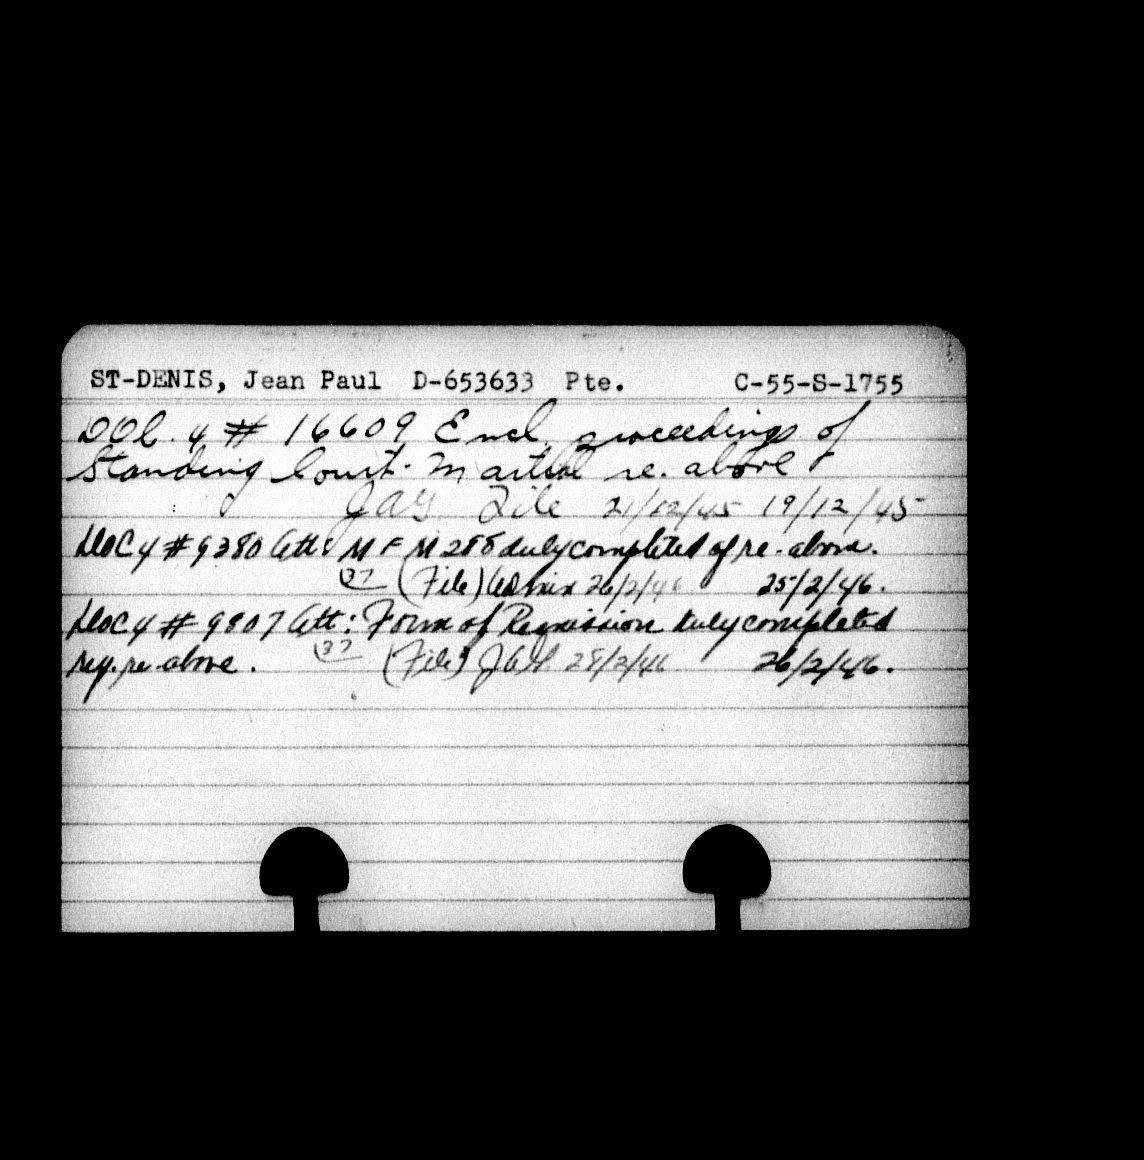 ST-DENIS, Jean Paul D-653633 Pte. C-55-S-1755
DOC. 4 # 16609 Encl. proceedings of
Standing Court-Martial re. above
JAG File 21/12/45 19/12/45
DOC 4 # 9380 Att: M F M 288 duly completed of re-above.
37 (File) Admin 26/2/46 25/2/46.
DOC 4 # 9807 Att: Form of Remission duly completed
reg. re-above. 37 (File) JAG 28/2/46 26/2/46.